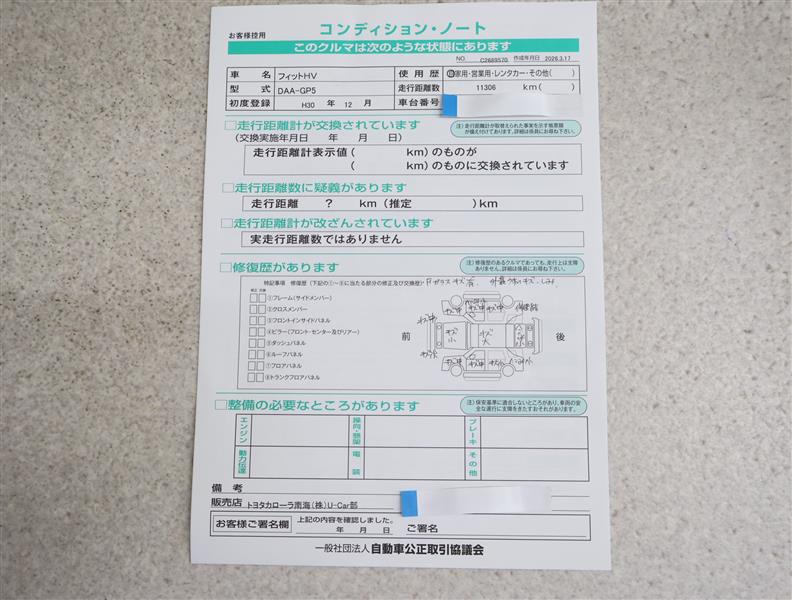 お客様控用
コンディション・ノート
このクルマは次のような状態にあります
NO. C2689570 作成年月日 2026.3.17
車名 フィットHV 使用歴 自家用・営業用・レンタカー・その他( )
型式 DAA-GP5 走行距離数 11306 km( )
初度登録 H30 年 12 月 車台番号
□走行距離計が交換されています
(注)走行距離計が取替えられた事実を示す帳票類が備え付けてあります。詳細は係員にお尋ね下さい。
(交換実施年月日 年 月 日)
走行距離計表示値( km)のものが
( km)のものに交換されています
□走行距離数に疑義があります
走行距離 ? km(推定 )km
□走行距離計が改ざんされています
実走行距離数ではありません
□修復歴があります
(注)修復歴のあるクルマであっても、走行上は支障ありません。詳細は係員にお尋ね下さい。
特記事項 修復歴(下記の①〜⑧に当たる部分の修正及び交換歴)・Fガラスキズ有
修正 交換
①フレーム(サイドメンバー)
②クロスメンバー
③フロントインサイドパネル
④ピラー(フロント・センター及びリアー)
⑤ダッシュパネル
⑥ルーフパネル
⑦フロアパネル
⑧トランクフロアパネル
前 後
キズ中
キズ小
キズ大
□整備の必要なところがあります
(注)保安基準に適合しないところがあり、車両の安全な運行に支障をきたすおそれがあります。
エンジン 操向・懸架 ブレーキ
動力伝達 電装 その他
備考
販売店 トヨタカローラ南海(株)U-Car部
お客様ご署名欄 上記の内容を確認しました。
年 月 日 ご署名
一般社団法人 自動車公正取引協議会